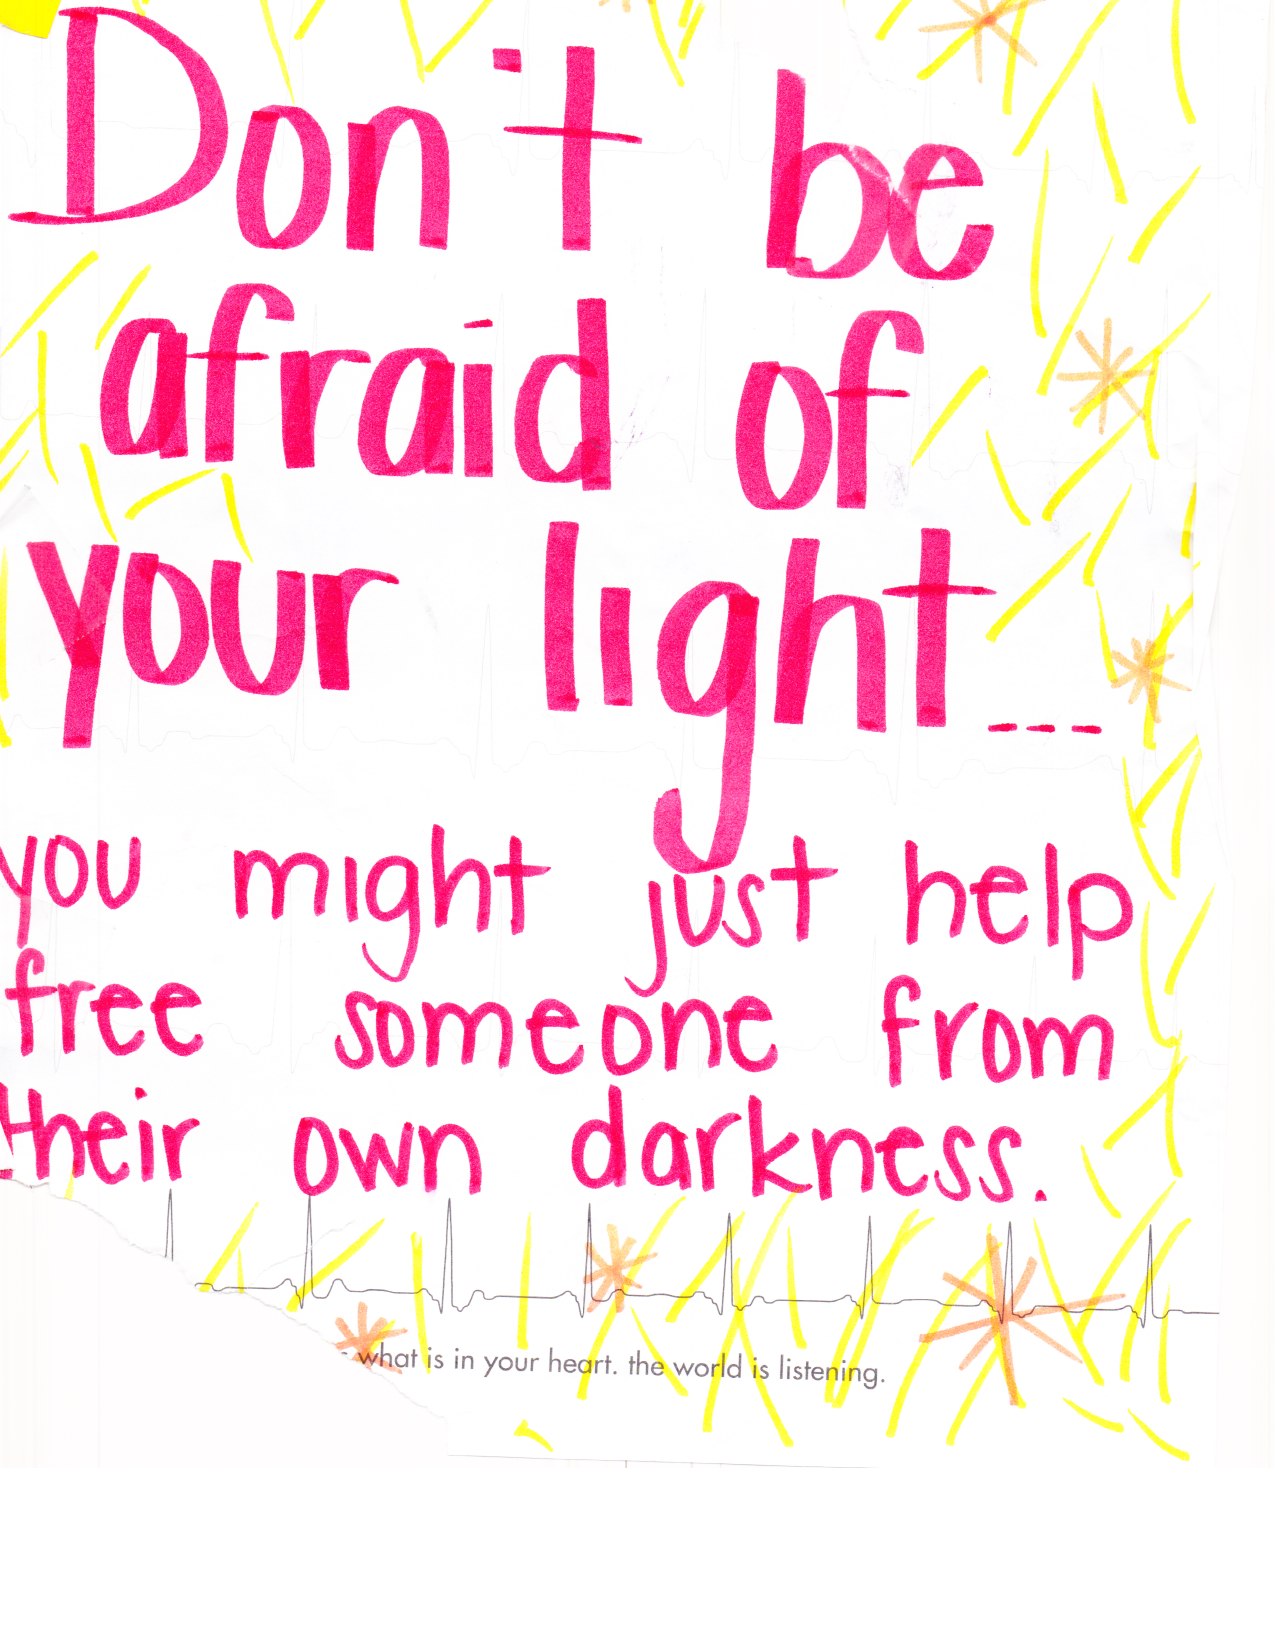 Don't be
afraid of
your light...
you might just help
free someone from
their own darkness.
what is in your heart. the world is listening.